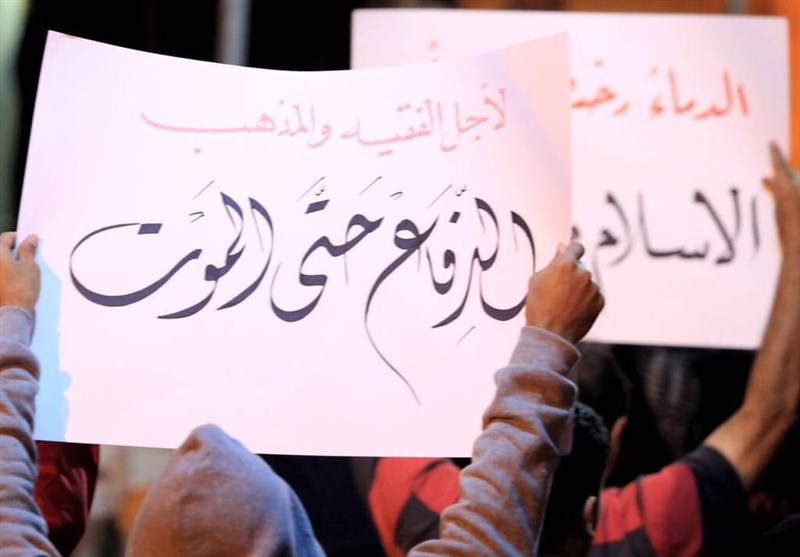 لأجل الفقيه والمذهب
الدِّفَاع حَتَّى المَوت
الدماءُ رخ
الاسلام